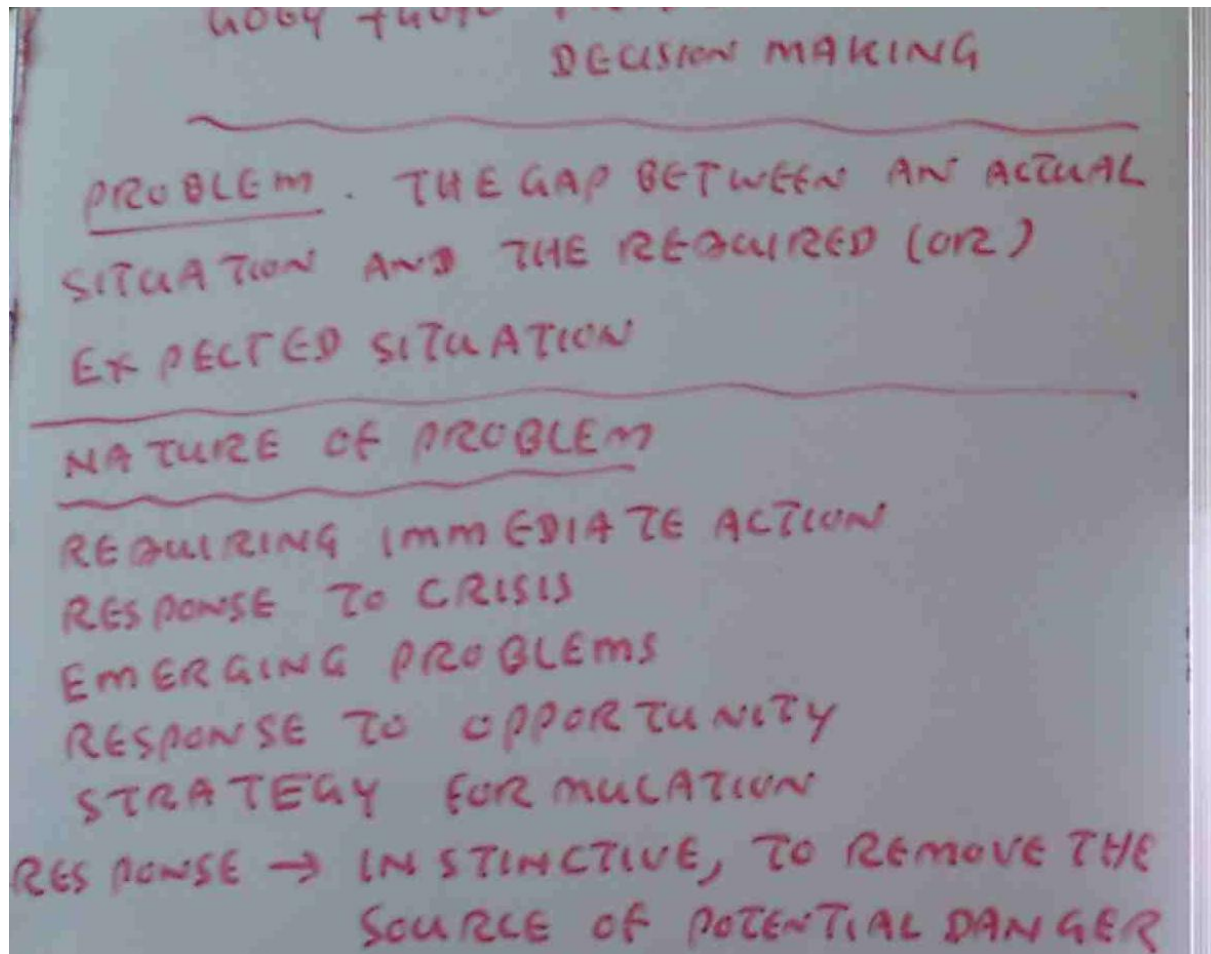 DECISION MAKING
PROBLEM. THE GAP BETWEEN AN ACTUAL
SITUATION AND THE REQUIRED (OR)
EXPECTED SITUATION
NATURE OF PROBLEM
REQUIRING IMMEDIATE ACTION
RESPONSE TO CRISIS
EMERGING PROBLEMS
RESPONSE TO OPPORTUNITY
STRATEGY FORMULATION
RESPONSE → INSTINCTIVE, TO REMOVE THE
SOURCE OF POTENTIAL DANGER